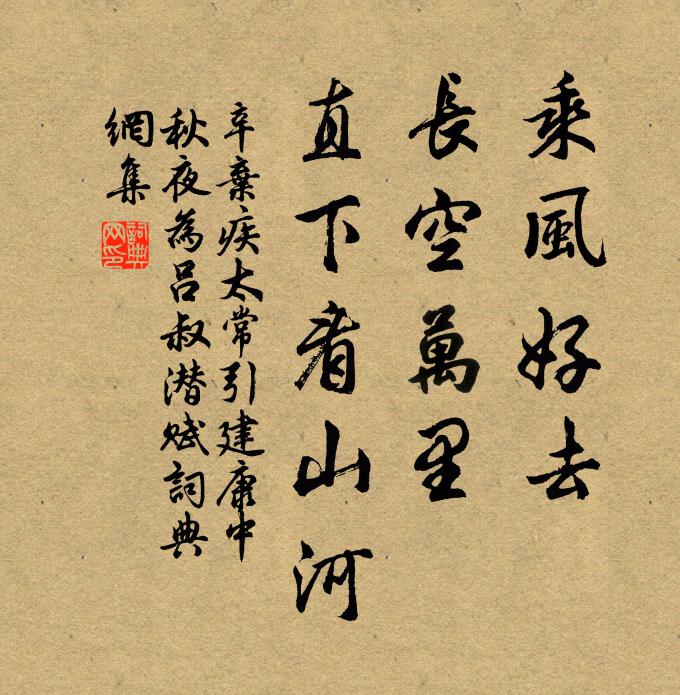 乘風好去
長空萬里
直下看山河
辛棄疾太常引建康中
秋夜為呂叔潛賦詞典
網集
詞典网印